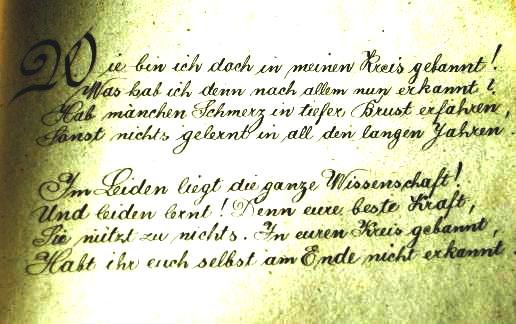 Wie bin ich doch in meinen Kreis gebannt!
Was hab ich denn nach allem nun erkannt?
Hab manchen Schmerz in tiefer Brust erfahren,
Sonst nichts gelernt in all den langen Jahren.
Im Leiden liegt die ganze Wissenschaft!
Und leiden lernt! Denn eure beste Kraft,
Sie nützt zu nichts. In euren Kreis gebannt,
Habt ihr euch selbst am Ende nicht erkannt.